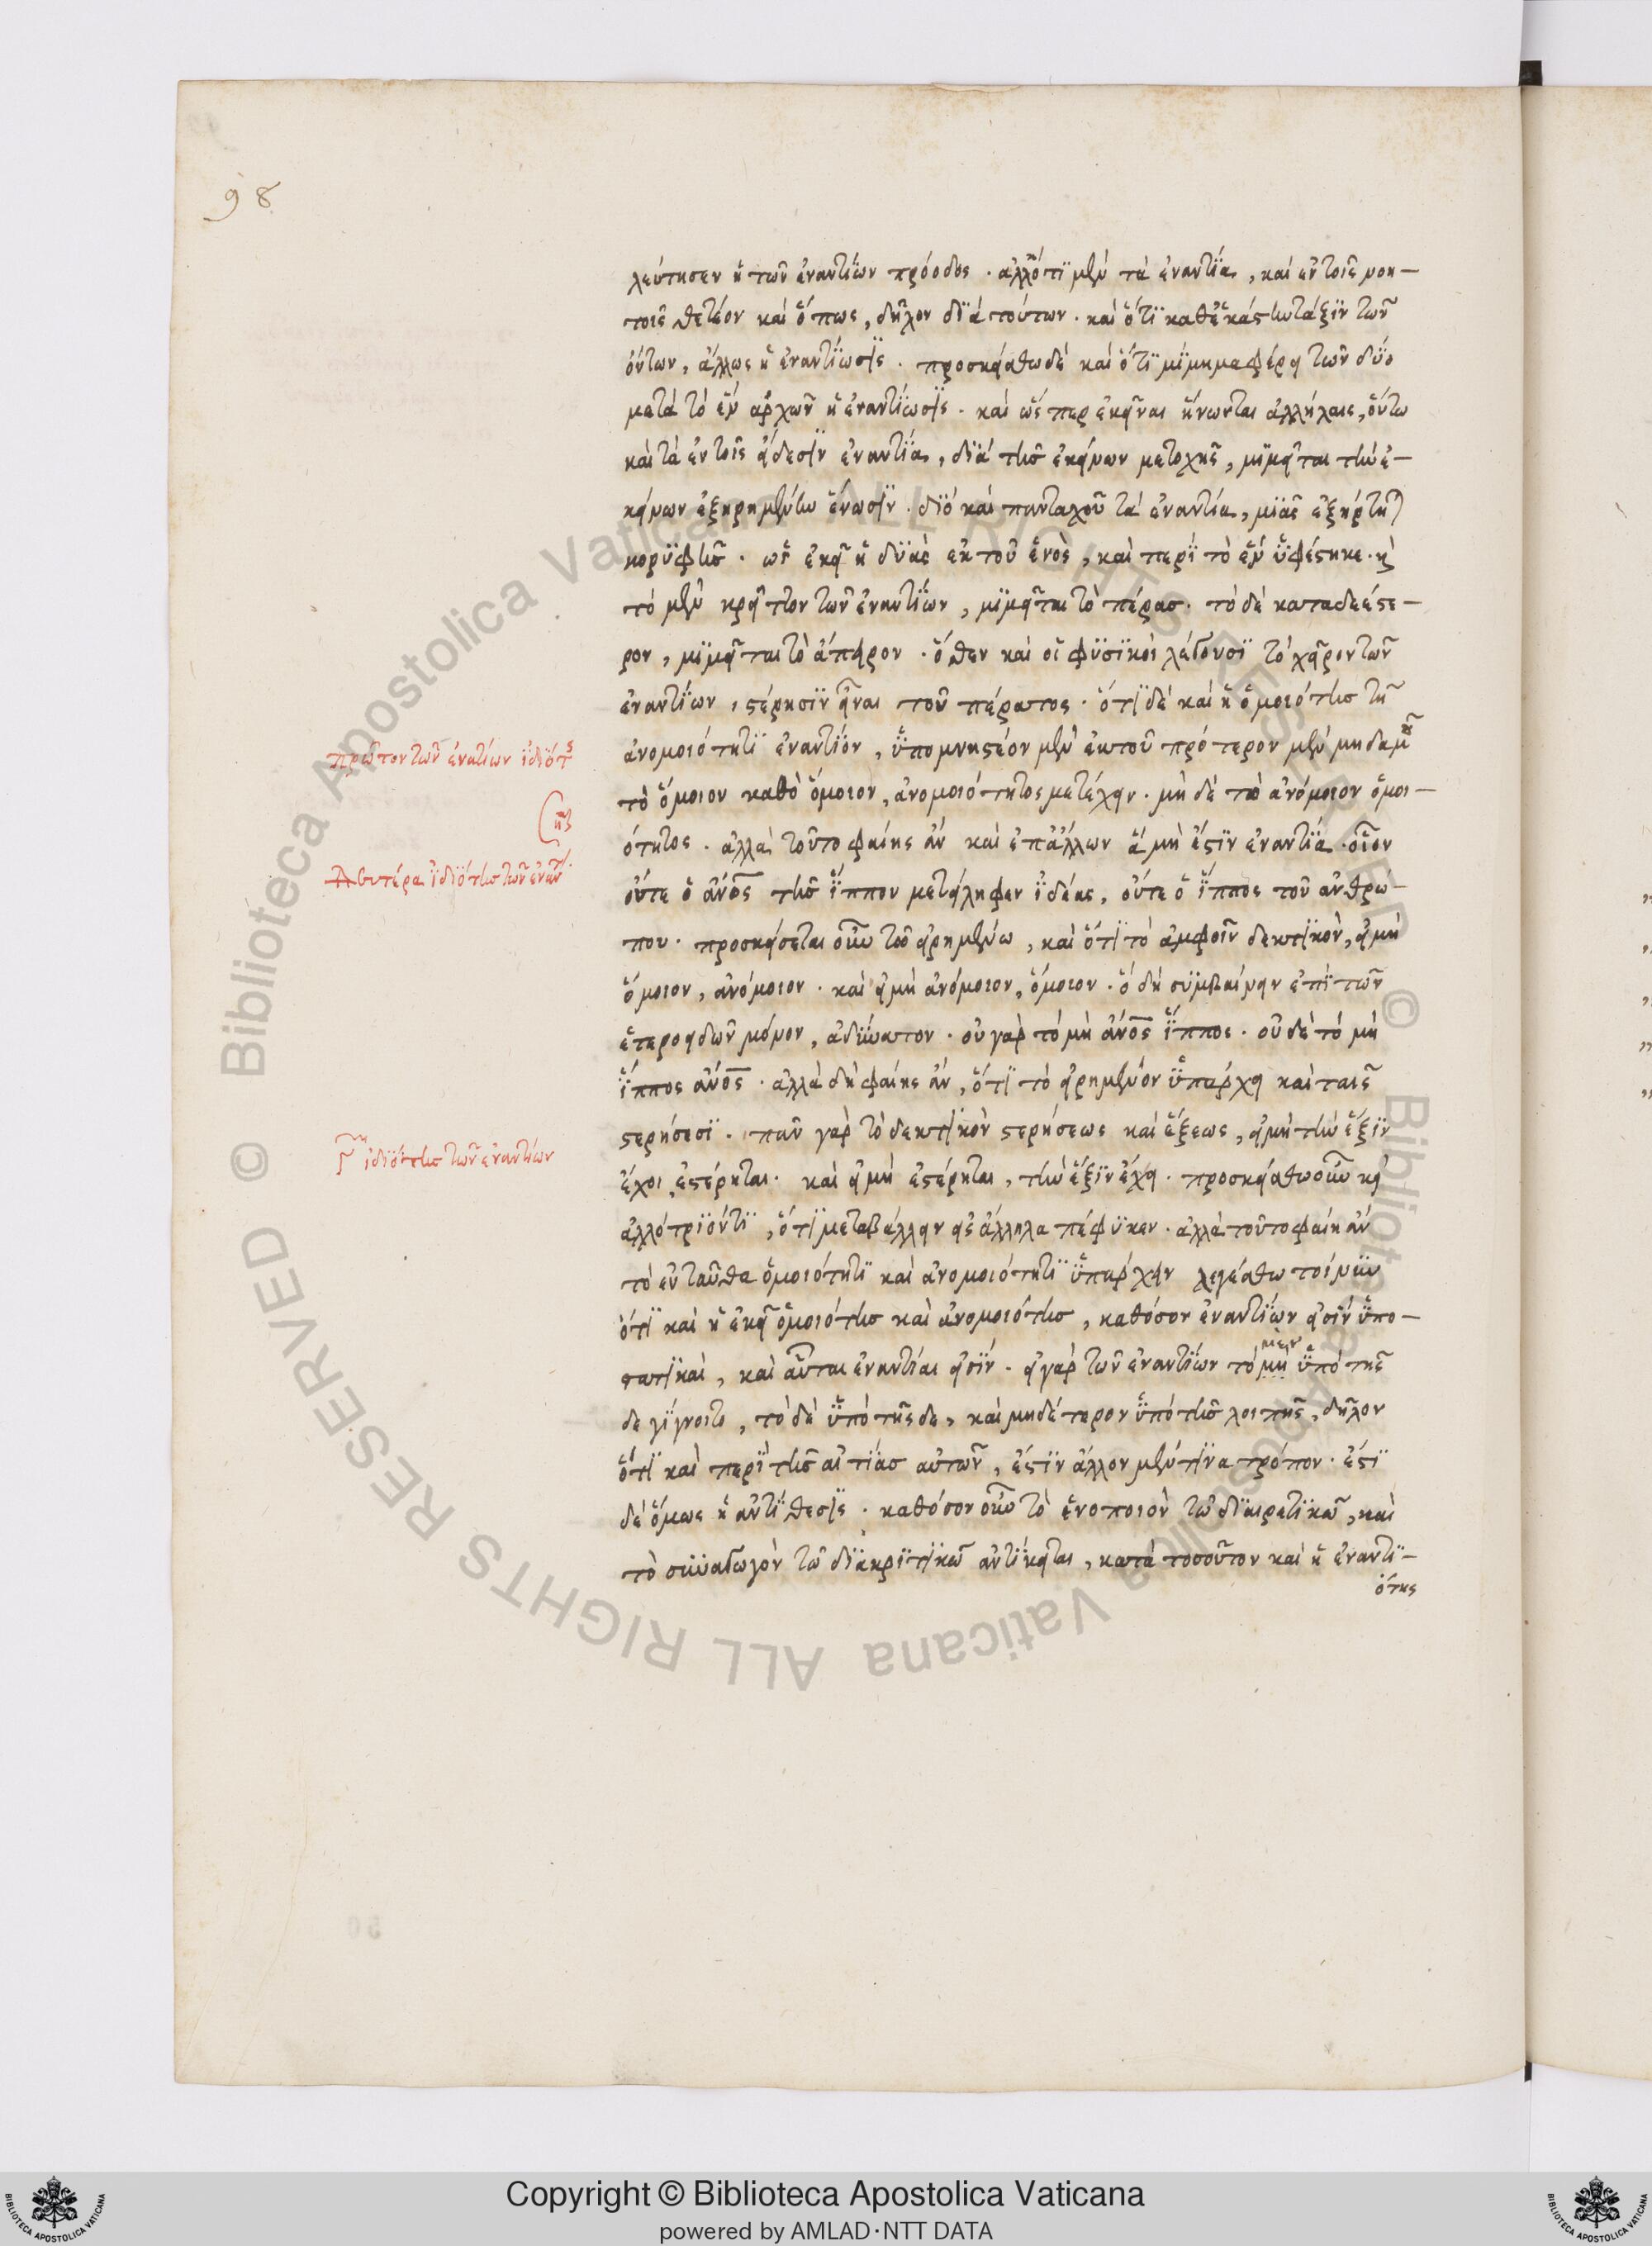 98
λεύτησεν ἡ τῶν ἐναντίων πρόοδος . ἀλλ' ὅτι μὲν τὰ ἐναντία, καὶ ἐν τοῖς νοη-
τοῖς θετέον καὶ ὅπως, δῆλον διὰ τούτων . καὶ ὅτι καθ' ἑκάστην τάξιν τῶν
ὄντων, ἄλλως ἡ ἐναντίωσις . προσκείσθω δὲ καὶ ὅτι μίμημα φέρει τῶν δύο
μετὰ τὸ ἓν ἀρχῶν ἡ ἐναντίωσις . καὶ ὥσπερ ἐκεῖναι ἥνωνται ἀλλήλαις, οὕτω
καὶ τὰ ἐν τοῖς εἴδεσιν ἐναντία, διὰ τῆς ἐκείνων μετοχῆς, μιμεῖται τὴν ἐ-
κείνων ἐξῃρημένην ἕνωσιν . διὸ καὶ πανταχοῦ τὰ ἐναντία, μιᾶς ἐξήρτηται
κορυφῆς . ὡς ἐκεῖ ἡ δυὰς ἐκ τοῦ ἑνὸς, καὶ περὶ τὸ ἓν ὑφέστηκε . καὶ
τὸ μὲν κρεῖττον τῶν ἐναντίων, μιμεῖται τὸ πέρας . τὸ δὲ καταδεέστε-
ρον, μιμεῖται τὸ ἄπειρον . ὅθεν καὶ οἱ φυσικοὶ λέγουσι τὸ χεῖρον τῶν
ἐναντίων, στέρησιν εἶναι τοῦ πέρατος . ὅτι δὲ καὶ ἡ ὁμοιότης τῆ
ἀνομοιότητι ἐναντίον, ὑπομνηστέον μὲν ἐκ τοῦ πρότερον μὲν μηδαμῆ
τὸ ὅμοιον καθὸ ὅμοιον, ἀνομοιότητος μετέχειν . μὴ δὲ τὸ ἀνόμοιον ὁμοι-
ότητος . ἀλλὰ τοῦτο φαίης ἂν καὶ ἐπ' ἄλλων ἃ μὴ ἔστιν ἐναντία . οἷον
οὔτε ὁ ἄνος τῆς ἵππου μετείληφεν ἰδέας, οὔτε ὁ ἵππος τοῦ ἀνθρώ-
που . προσκείσεται οὖν τῶ εἰρημένω, καὶ ὅτι τὸ ἀμφοῖν δεκτικὸν, εἰ μὴ
ὅμοιον, ἀνόμοιον . καὶ εἰ μὴ ἀνόμοιον, ὅμοιον . ὃ δὴ συμβαίνειν ἐπὶ τῶν
ἑτεροειδῶν μόνον, ἀδύνατον . οὐ γὰρ τὸ μὴ ἄνος ἵππος . οὐδὲ τὸ μὴ
ἵππος ἄνος . ἀλλὰ δὴ φαίης ἂν, ὅτι τὸ εἰρημένον ὑπάρχει καὶ ταῖς
στερήσεσι . πᾶν γὰρ τὸ δεκτικὸν στερήσεως καὶ ἕξεως, εἰ μὴ τὴν ἕξιν
ἔχοι, ἐστέρηται . καὶ εἰ μὴ ἐστέρηται, τὴν ἕξιν ἔχει . προσκείσθω οὖν καὶ
ἀλλότριόν τι, ὅτι μεταβάλλειν εἰς ἄλληλα πέφυκεν . ἀλλὰ τοῦτο φαίη ἂν
τὸ ἐνταῦθα ὁμοιότητι καὶ ἀνομοιότητι ὑπάρχειν λεγέσθω τοίνυν
ὅτι καὶ ἡ ἐκεῖ ὁμοιότης καὶ ἀνομοιότης, καθόσον ἐναντίων εἰσὶν ὑπο-
στατικαὶ, καὶ αὗται ἐναντίαι εἰσίν . εἰ γὰρ τῶν ἐναντίων τὸ μὴ μὲν ὑπὸ τῆς
δε γίγνοιτο, τὸ δὲ ὑπὸ τῆσδε, καὶ μηδέτερον ὑπὸ τῆς λοιπῆς, δῆλον
ὅτι καὶ περὶ τῆς αἰτίας αὐτῶν, ἔστιν ἄλλον μέν τινα τρόπον . ἔστι
δὲ ὅμως ἡ ἀντίθεσις . καθόσον οὖν τὸ ἑνοποιὸν τῶ διαιρετικῶ, καὶ
τὸ συναγωγὸν τῶ διακριτικῶ ἀντίκειται, κατὰ τοσοῦτον καὶ ἡ ἐναντι-
ότης
πρῶτον τῶν ἐνατίων ἰδιότς
Δευτέρα ἰδιότης τῶν ἐναντι.
Γ ἰδιότης τῶν ἐναντίων
Copyright © Biblioteca Apostolica Vaticana
powered by AMLAD·NTT DATA
© Biblioteca Apostolica Vaticana ALL RIGHTS RESERVED
© Biblioteca Apostolica Vaticana ALL RIGHTS RESERVED
BIBLIOTECA APOSTOLICA VATICANA
BIBLIOTECA APOSTOLICA VATICANA